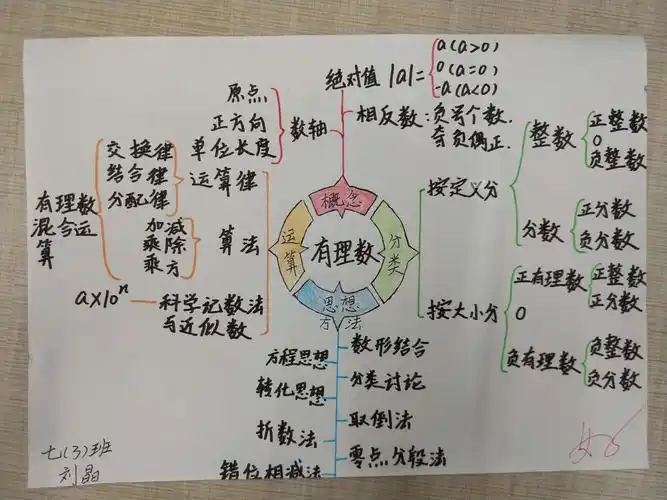 绝对值 |a|=
a(a>0)
0(a=0)
-a(a<0)
相反数:负号个数.
奇负偶正.
数轴
原点
正方向
单位长度
概念
有理数
分类
按定义分
整数
正整数
0
负整数
分数
正分数
负分数
按大小分
正有理数
正整数
正分数
0
负有理数
负整数
负分数
运算
运算律
交换律
结合律
分配律
算法
加减
乘除
乘方
有理数
混合运
算
科学记数法
与近似数
a×10ⁿ
思想
方法
数形结合
方程思想
分类讨论
转化思想
取倒法
折数法
零点分段法
错位相减法
七(3)班
刘晶